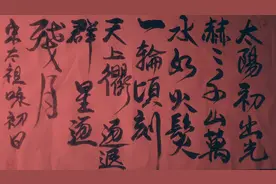 太陽初出光
赫〻千山萬
水如火發
一輪頃刻
天上衢退
群星
殘月
宋太祖咏初日